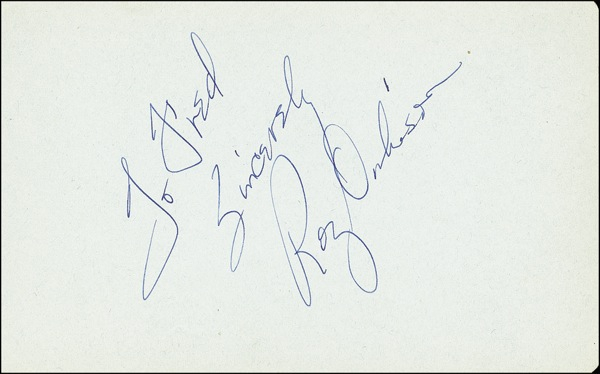 To Fred
Sincerely
Roy Orbison